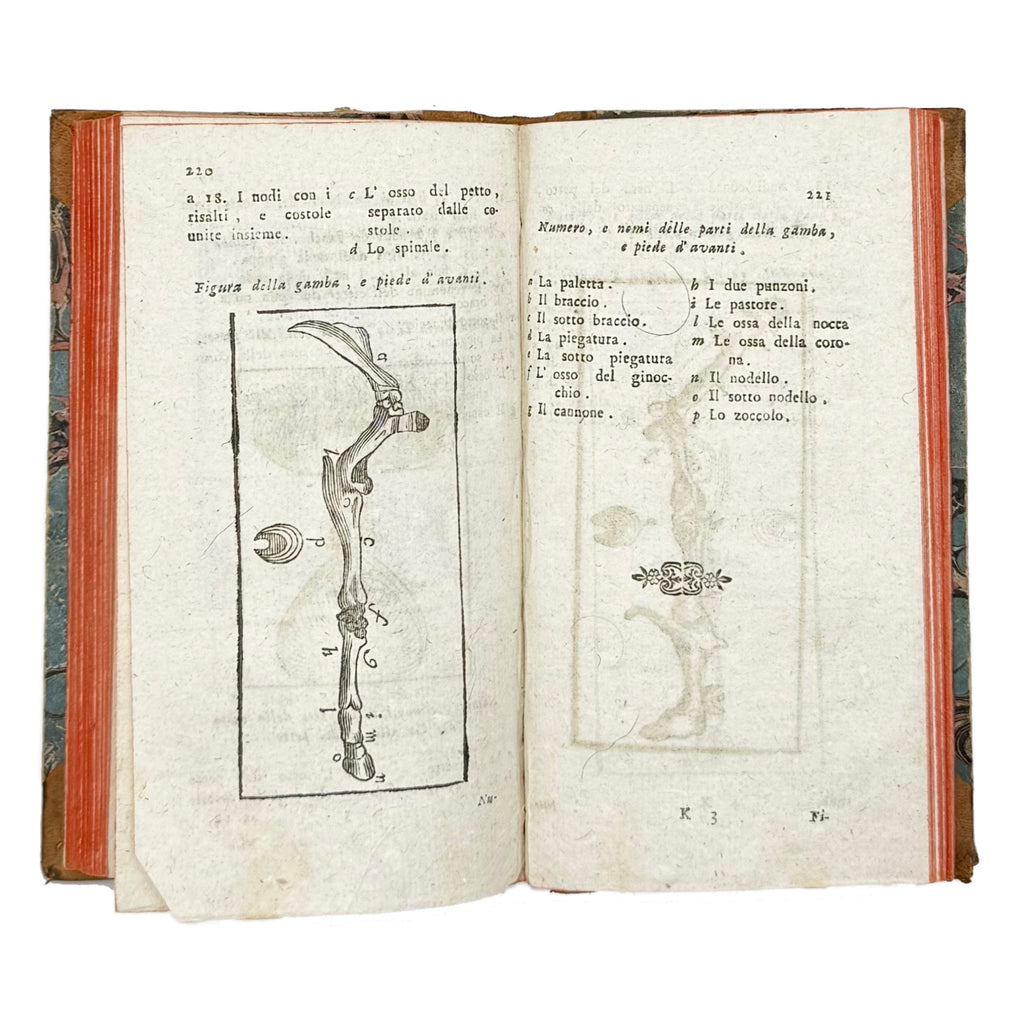 220
a 18. I nodi con i
risalti, e costole
unite insieme.
c L' osso del petto,
separato dalle co-
stole.
d Lo spinale.
Figura della gamba, e piede d'avanti.
a
b
c
c
d
f
g
h
l
i
m
o
n
Nu-
221
Numero, e nomi delle parti della gamba,
e piede d'avanti.
a La paletta.
b Il braccio.
c Il sotto braccio.
d La piegatura.
e La sotto piegatura
f L' osso del ginoc-
chio.
g Il cannone.
h I due punzoni.
i Le pastore.
l Le ossa della nocca
m Le ossa della coro-
na.
n Il nodello.
o Il sotto nodello.
p Lo zoccolo.
K 3
Fi-